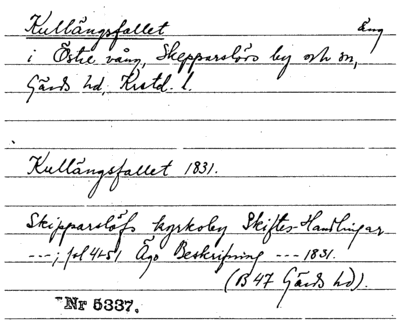 Kullängsfallet äng
i Östre vång, Skepparslövs by och sn,
Gärds hd, Krstd. l.
Kullängsfallet 1831.
Skipparslöfs kyrkoby Skiftes-Handlingar
---; fol 4151 Ägo Beskrifning --- 1831.
(B 47 Gärds hd).
Nr 5337.